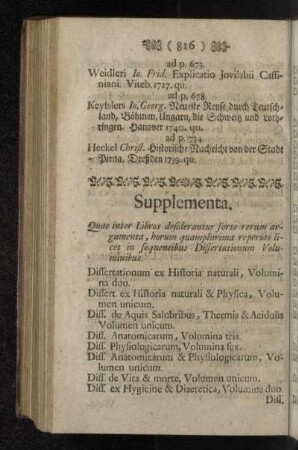 ( 816 )
ad p. 673.
Weidleri Io. Frid. Explicatio Jovilabii Cassi-
niani. Viteb. 1727. qu.
ad p. 678.
Keyslers Io. Georg. Neueste Reyse durch Teutsch-
land, Böhmen, Ungarn, die Schweitz und Loth-
ringen. Hanover 1740. qu.
ad p. 734.
Heckel Christ. Historische Nachricht von der Stadt
Pirna. Dreßden 1739. qu.
Supplementa.
Quae inter Libros desiderantur forte rerum ar-
gumenta, horum quamplurima reperire li-
cet in sequentibus Dissertationum Volu-
minibus.
Dissertationum ex Historia naturali, Volumi-
na duo.
Dissert. ex Historia naturali & Physica, Volu-
men unicum.
Diss. de Aquis Salubribus, Thermis & Acidulis
Volumen unicum.
Diss. Anatomicarum, Volumina tria.
Diss. Physiologicarum, Volumina sex.
Diss. Anatomicarum & Physiologicarum, Vo-
lumen unicum.
Diss. de Vita & morte, Volumen unicum.
Diss. ex Hygieine & Diaetetica, Volumina duo.
Diss.